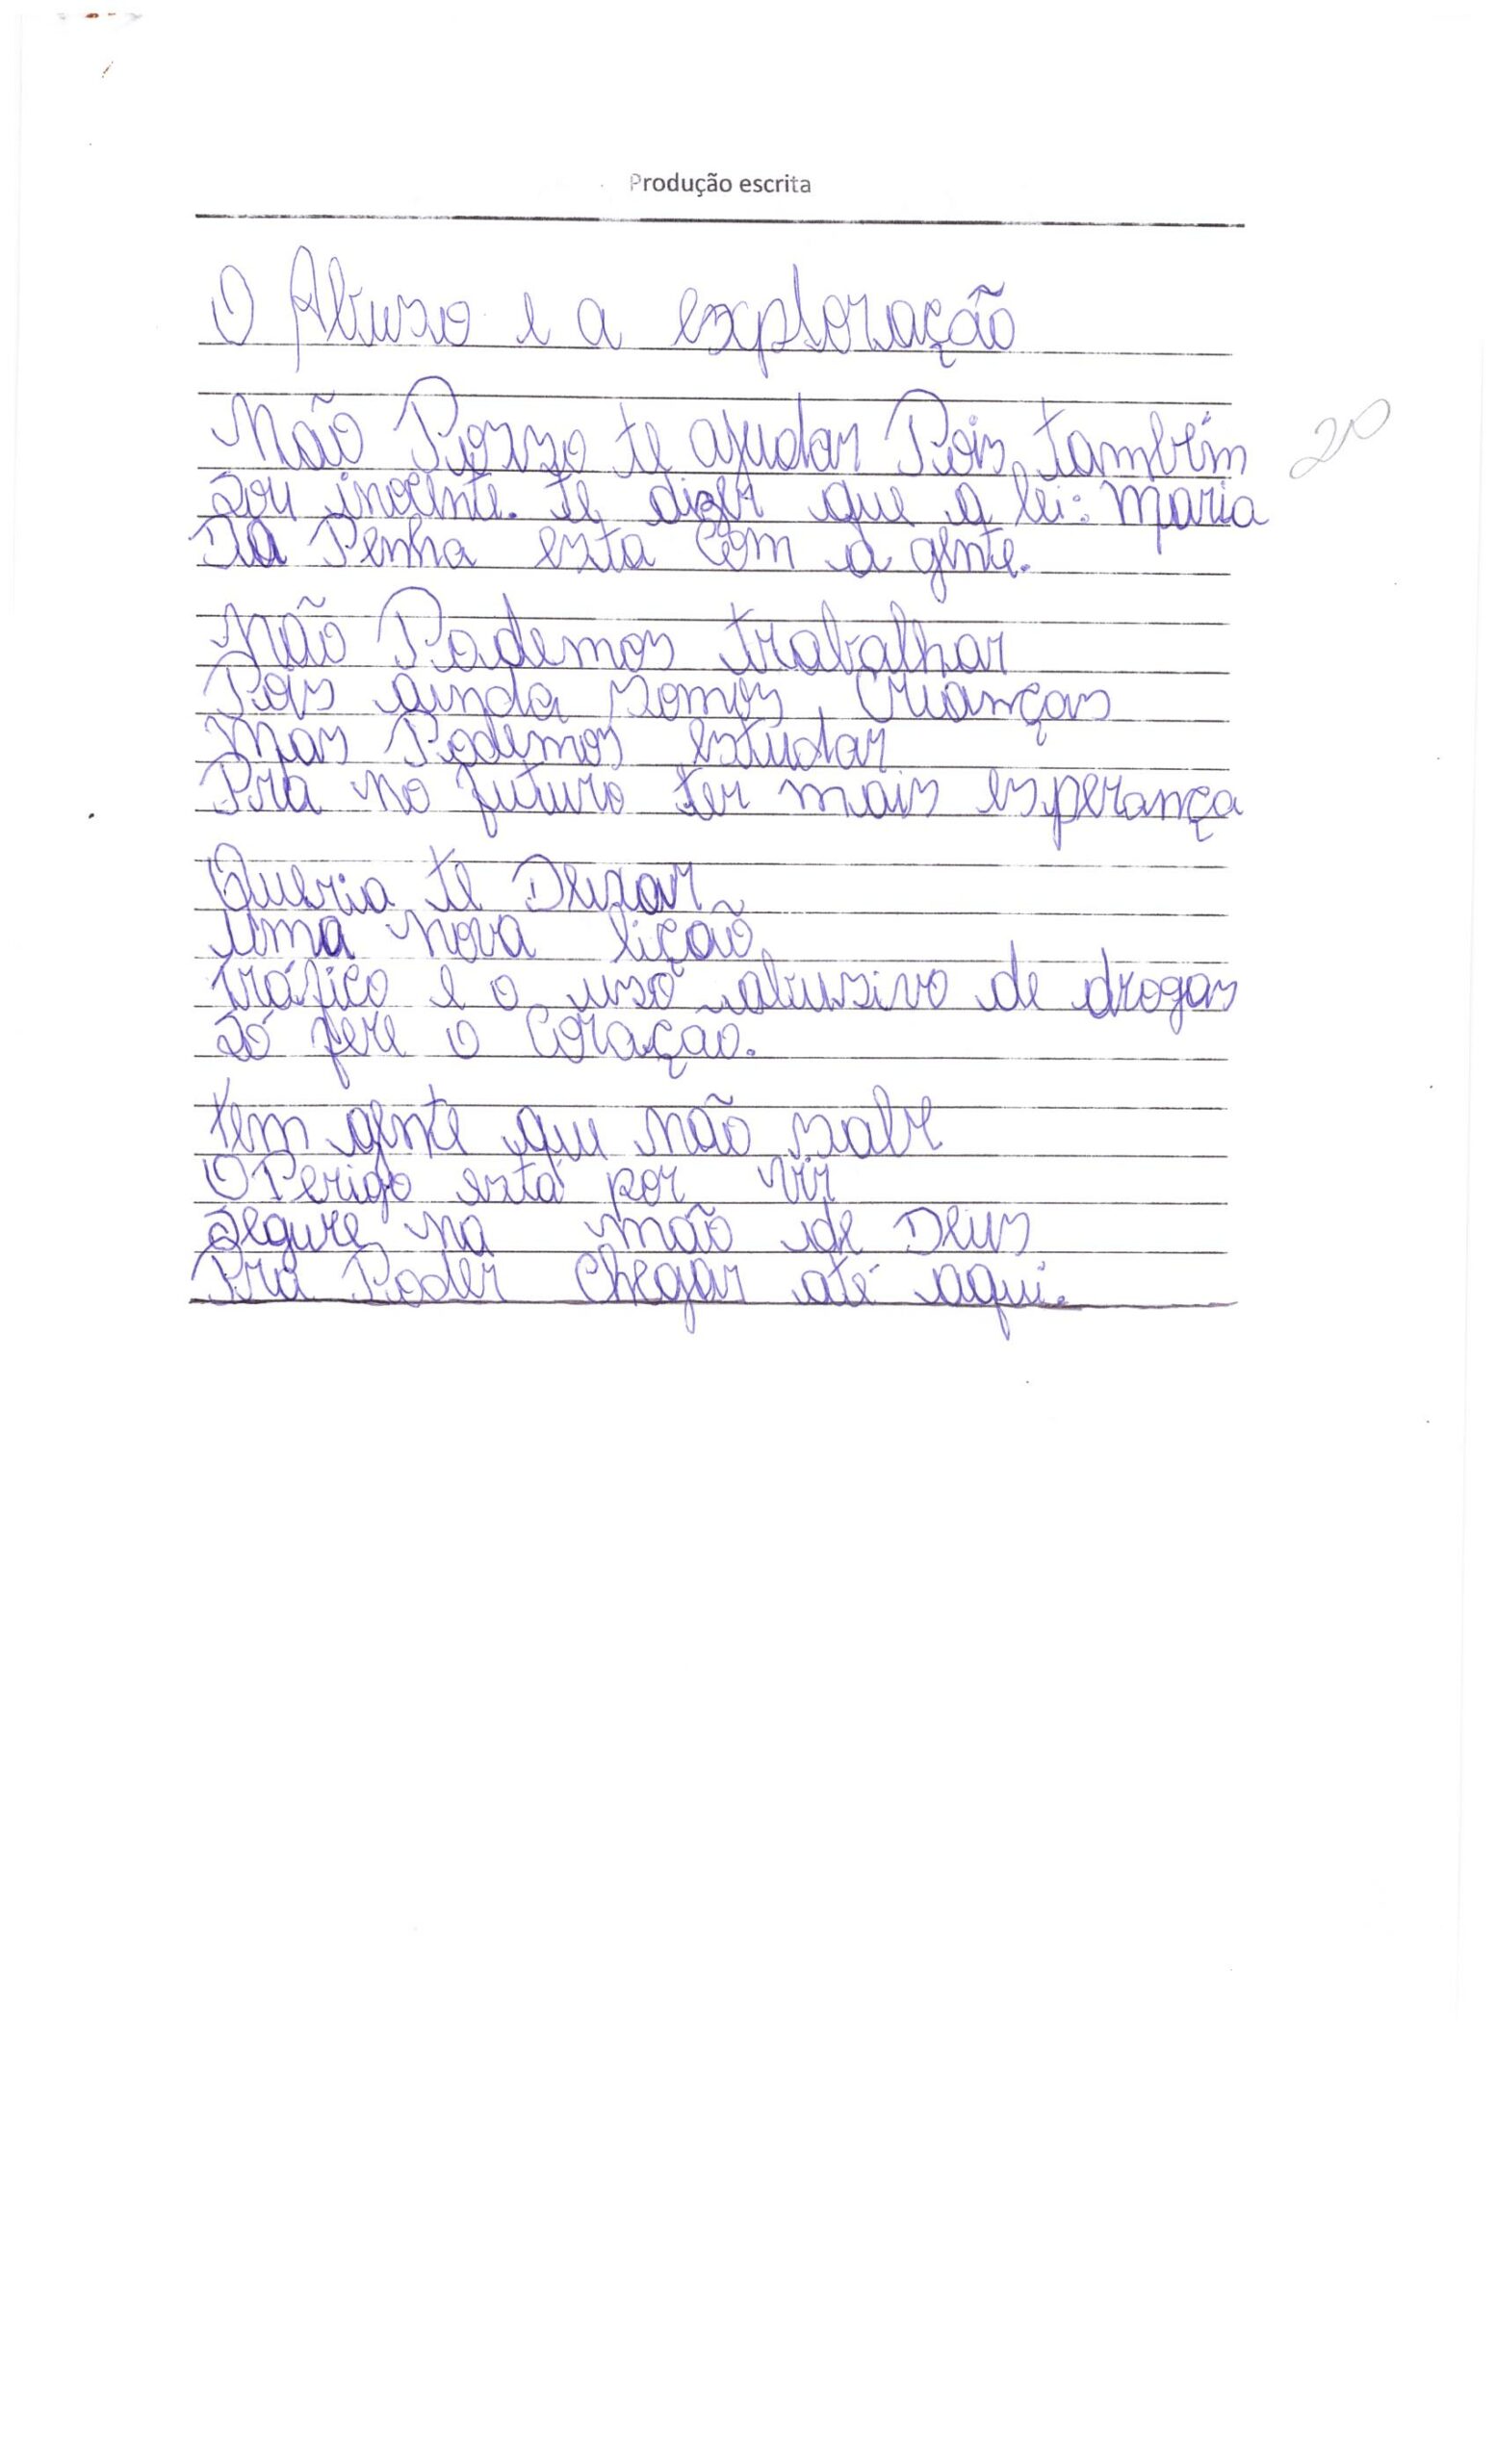 Produção escrita
O Abuso e a exploração
Não Posso te ajudar Pois também 20
Sou inocente. te dizer que a lei: Maria
Da Penha esta com a gente.
Não Podemos trabalhar
Pois ainda somos Crianças
Mas Podemos estudar
Pra no futuro ter mais esperança
Queria te Deixar
uma nova lição
tráfico e o uso abusivo de drogas
Só fere o Coração.
tem gente que não sabe
O Perigo está por vir
Segure na mão de Deus
Pra Poder Chegar até aqui.